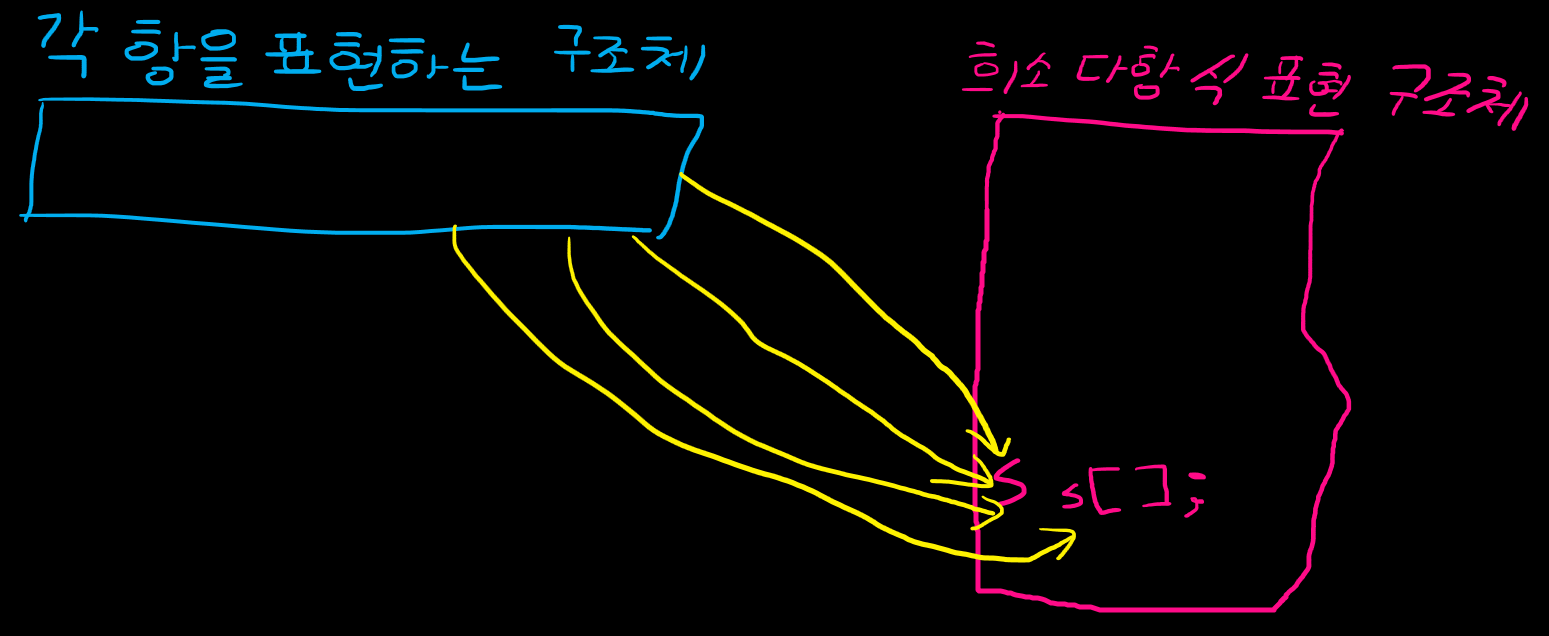 각 항을 표현하는 구조체
희소 다항식 표현 구조체
S s[ ];